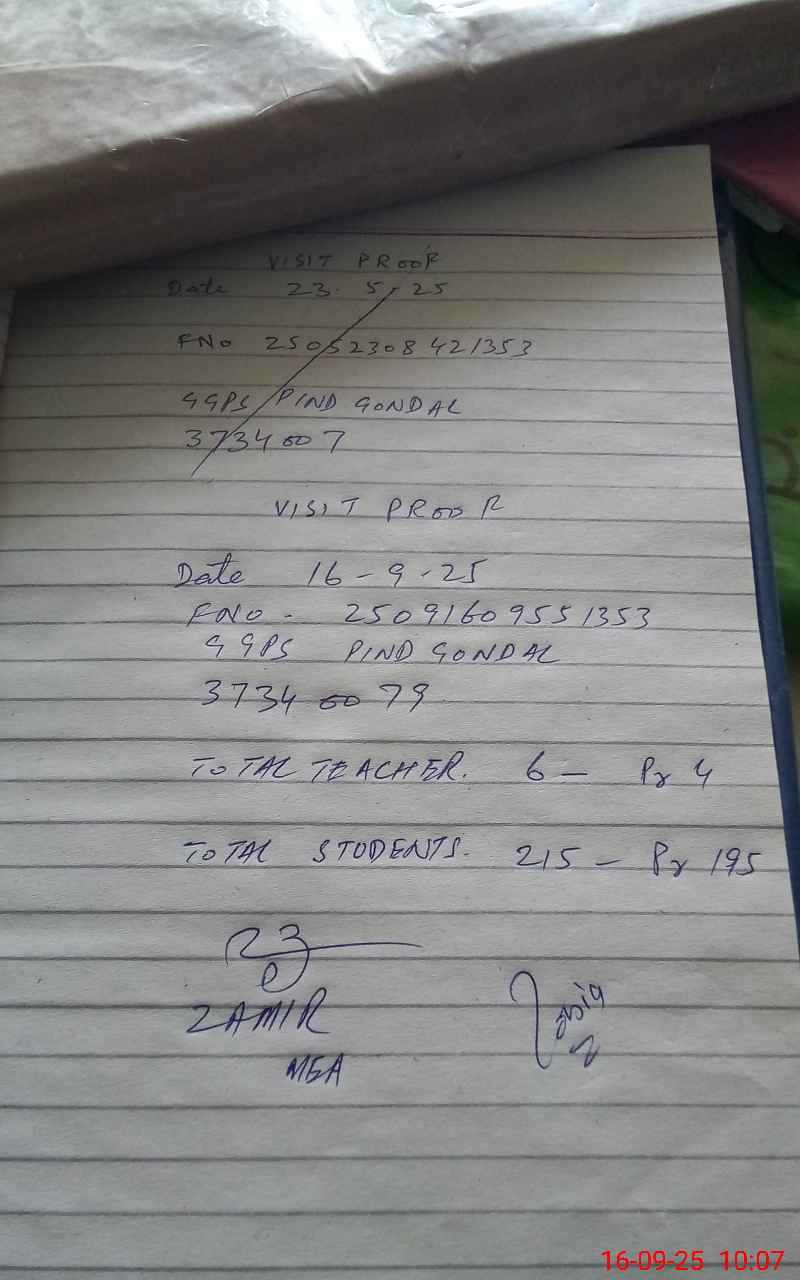 VISIT PROOF
Date 23. 5 - 25
FNo 25052308421353
GGPS PIND GONDAL
3734007
VISIT PROOF
Date 16-9-25
FNO - 25091609551353
GGPS PIND GONDAL
37340079
TOTAL TEACHER. 6 - Pr 4
TOTAL STUDENTS. 215 - Pr 195
ZAMIR
MEA
16-09-25 10:07